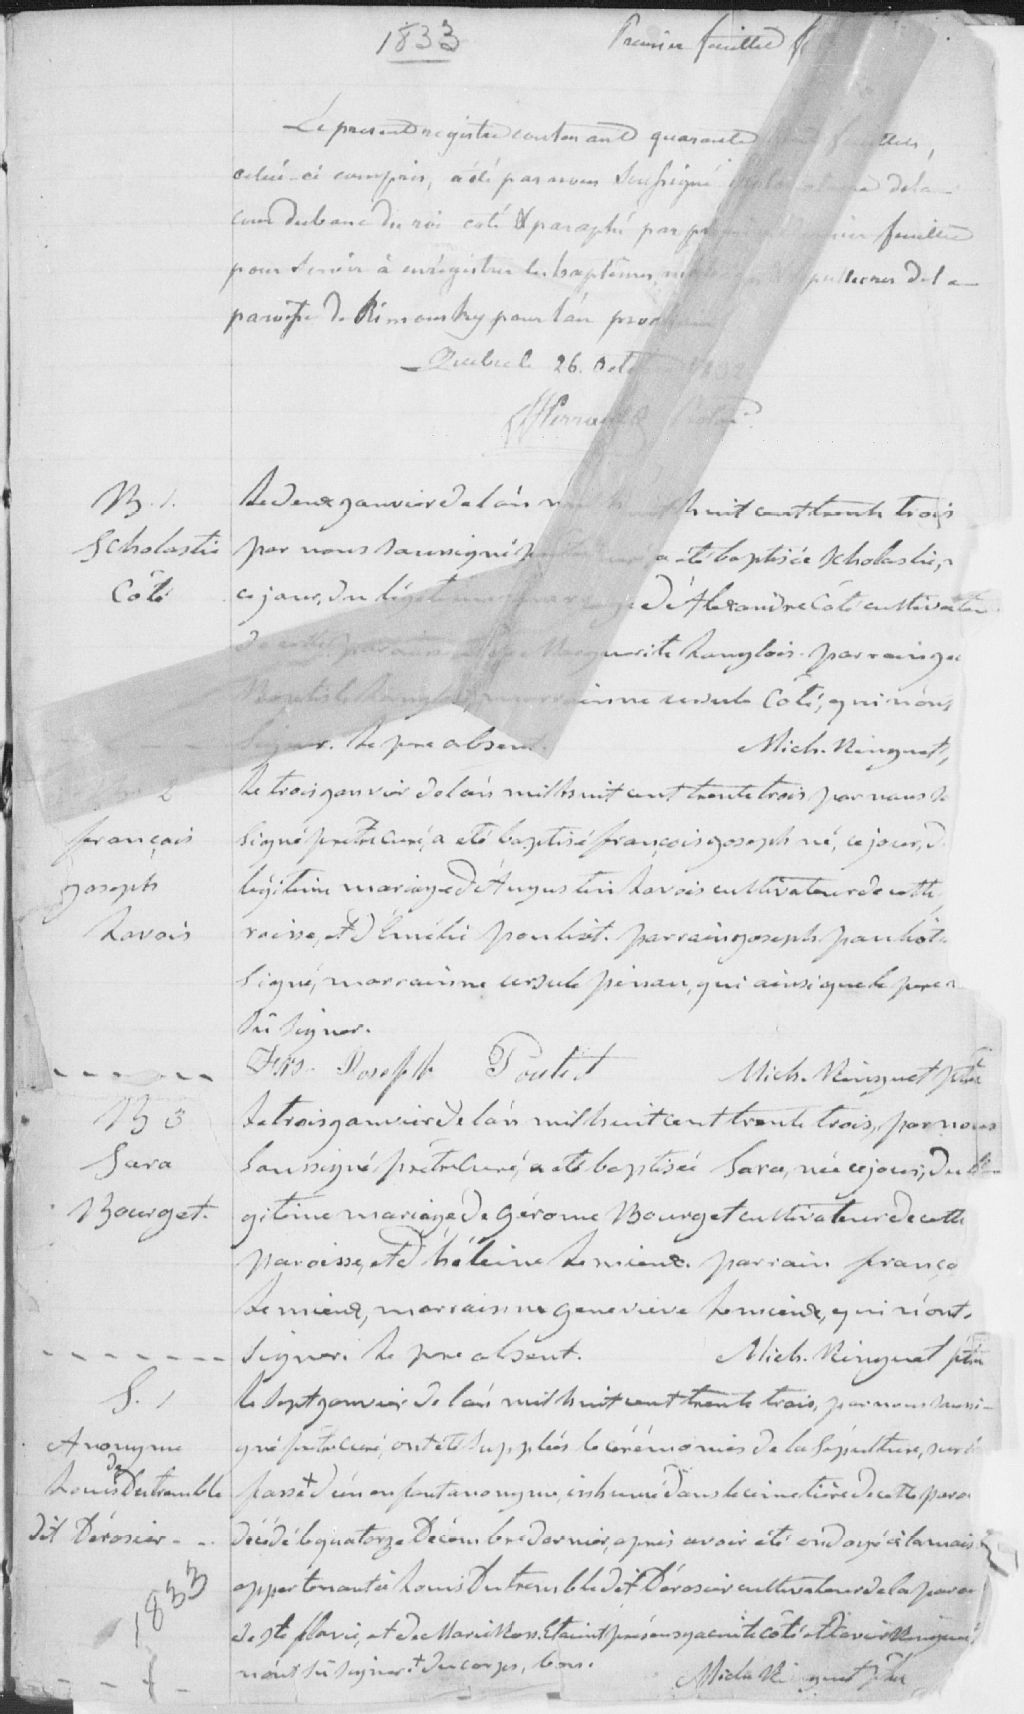 1833
Premier feuillet
Le present registre contenant quarante feuillets,
celui-ci compris, a été par nous Soussigné de la
cour du banc du roi coté & paraphé par premier & dernier feuillet
pour servir à enrégistrer les baptêmes, mariages & sepultures de la
paroisse de Rimousky pour l'an prochain
Quebec le 26. Octobre 1832
Perrault
B. 1.
Scholastie
Côté
Le deux janvier de l'an mil huit cent trente trois
par nous soussigné prêtre curé a été baptisée Scholastie,
ce jour, du légitime mariage d'Alexandre Côté cultivateur
de cette paroisse et de Marguerite Langlois. parrain
Baptiste Langlois, marrainne ursule Côté, qui n'ont
signer. Le pre absent.
Mich. Ringuet,
2
françois
joseph
Lavois
Le trois janvier de l'an mil huit cent trente trois par nous
signé prêtre curé, a été baptisé françois joseph né, ce jour, d
légitime mariage d'Augustin Lavois cultivateur de cette
roisse, et d'Emélie pouliot. parrain joseph pouliot
signé, marrainne ursule pinau, qui ainsi que le pere
sû signer.
Frs. Joseph Pouliot
Mich. Ringuet ptre
B 3
Sara
Bourget.
Le trois janvier de l'an mil huit cent trente trois, par nous
Soussigné prêtre curé, a été baptisée Sara, née ce jour, du lé-
gitime mariage de Gérome Bourget cultivateur de cette
paroisse, et d'héleine Lemieux. parrain franço
Lemieux, marrainne genevieve Lemieux, qui n'ont
signer. Le pre absent.
Mich. Ringuet ptre
S. 1
Anonyme
de
Louis Dutremble
dit Dérosier
1833
Le sept janvier de l'an mil huit cent trente trois, par nous soussi-
gné prêtre curé, ont été supplées les cérémonies de la Sépulture, sur la
fosse + d'un enfant anonyme, inhumé dans le cimetière de cette paro
décédé le quatorze Décembre dernier, après avoir été ondoyé à la mais
appartenant à Louis Dutremble dit Dérosier cultivateur de la paro
de Ste flavie, et de Marie Ross. Etaient présens hyacinte Côté et Xavier Ringuet
n'ont sû signer. + du corps, bon.
Mich. Ringuet ptre